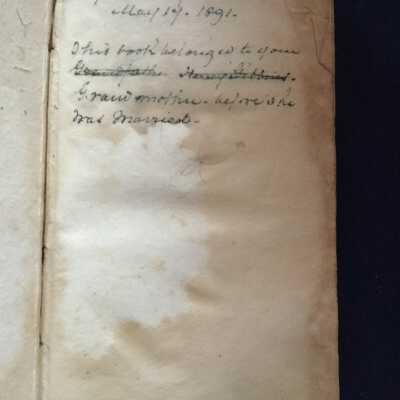 May 17. 1891.
This book belonged to your
Grandfather Henry Gibbins.
Grandmother. before she
was Married.